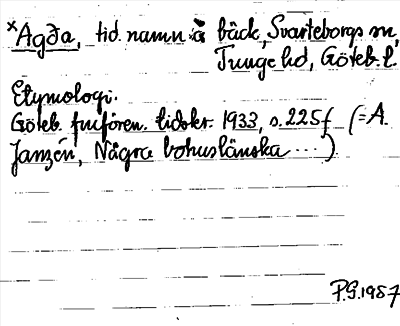 *Agða, tid. namn å bäck, Svarteborgs sn,
Tunge hd, Göteb. l.
Etymologi.
Göteb. fncfören. tidskr. 1933, s. 225 f. (= A.
Janzén, Några bohuslänska ....)
P.G. 1957